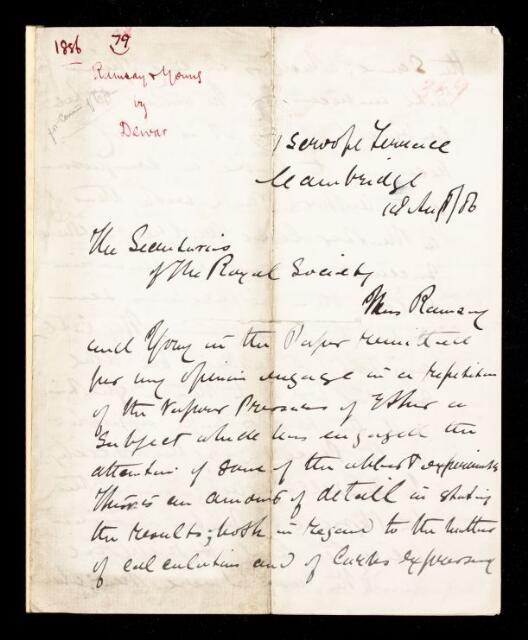 1886 79
Ramsay & Young
by
Dewar
1 Scroope Terrace
Cambridge
18 Aug/86
The Secretaries
of the Royal Society
Mess Ramsay
and Young in the Paper remitted
for my opinion engage in a repetition
of the Vapour Pressures of Ether a
Subject which has engaged the
attention of some of the ablest experimenters
There is an amount of detail in stating
the results; both in regard to the method
of calculation and of Curves expressing